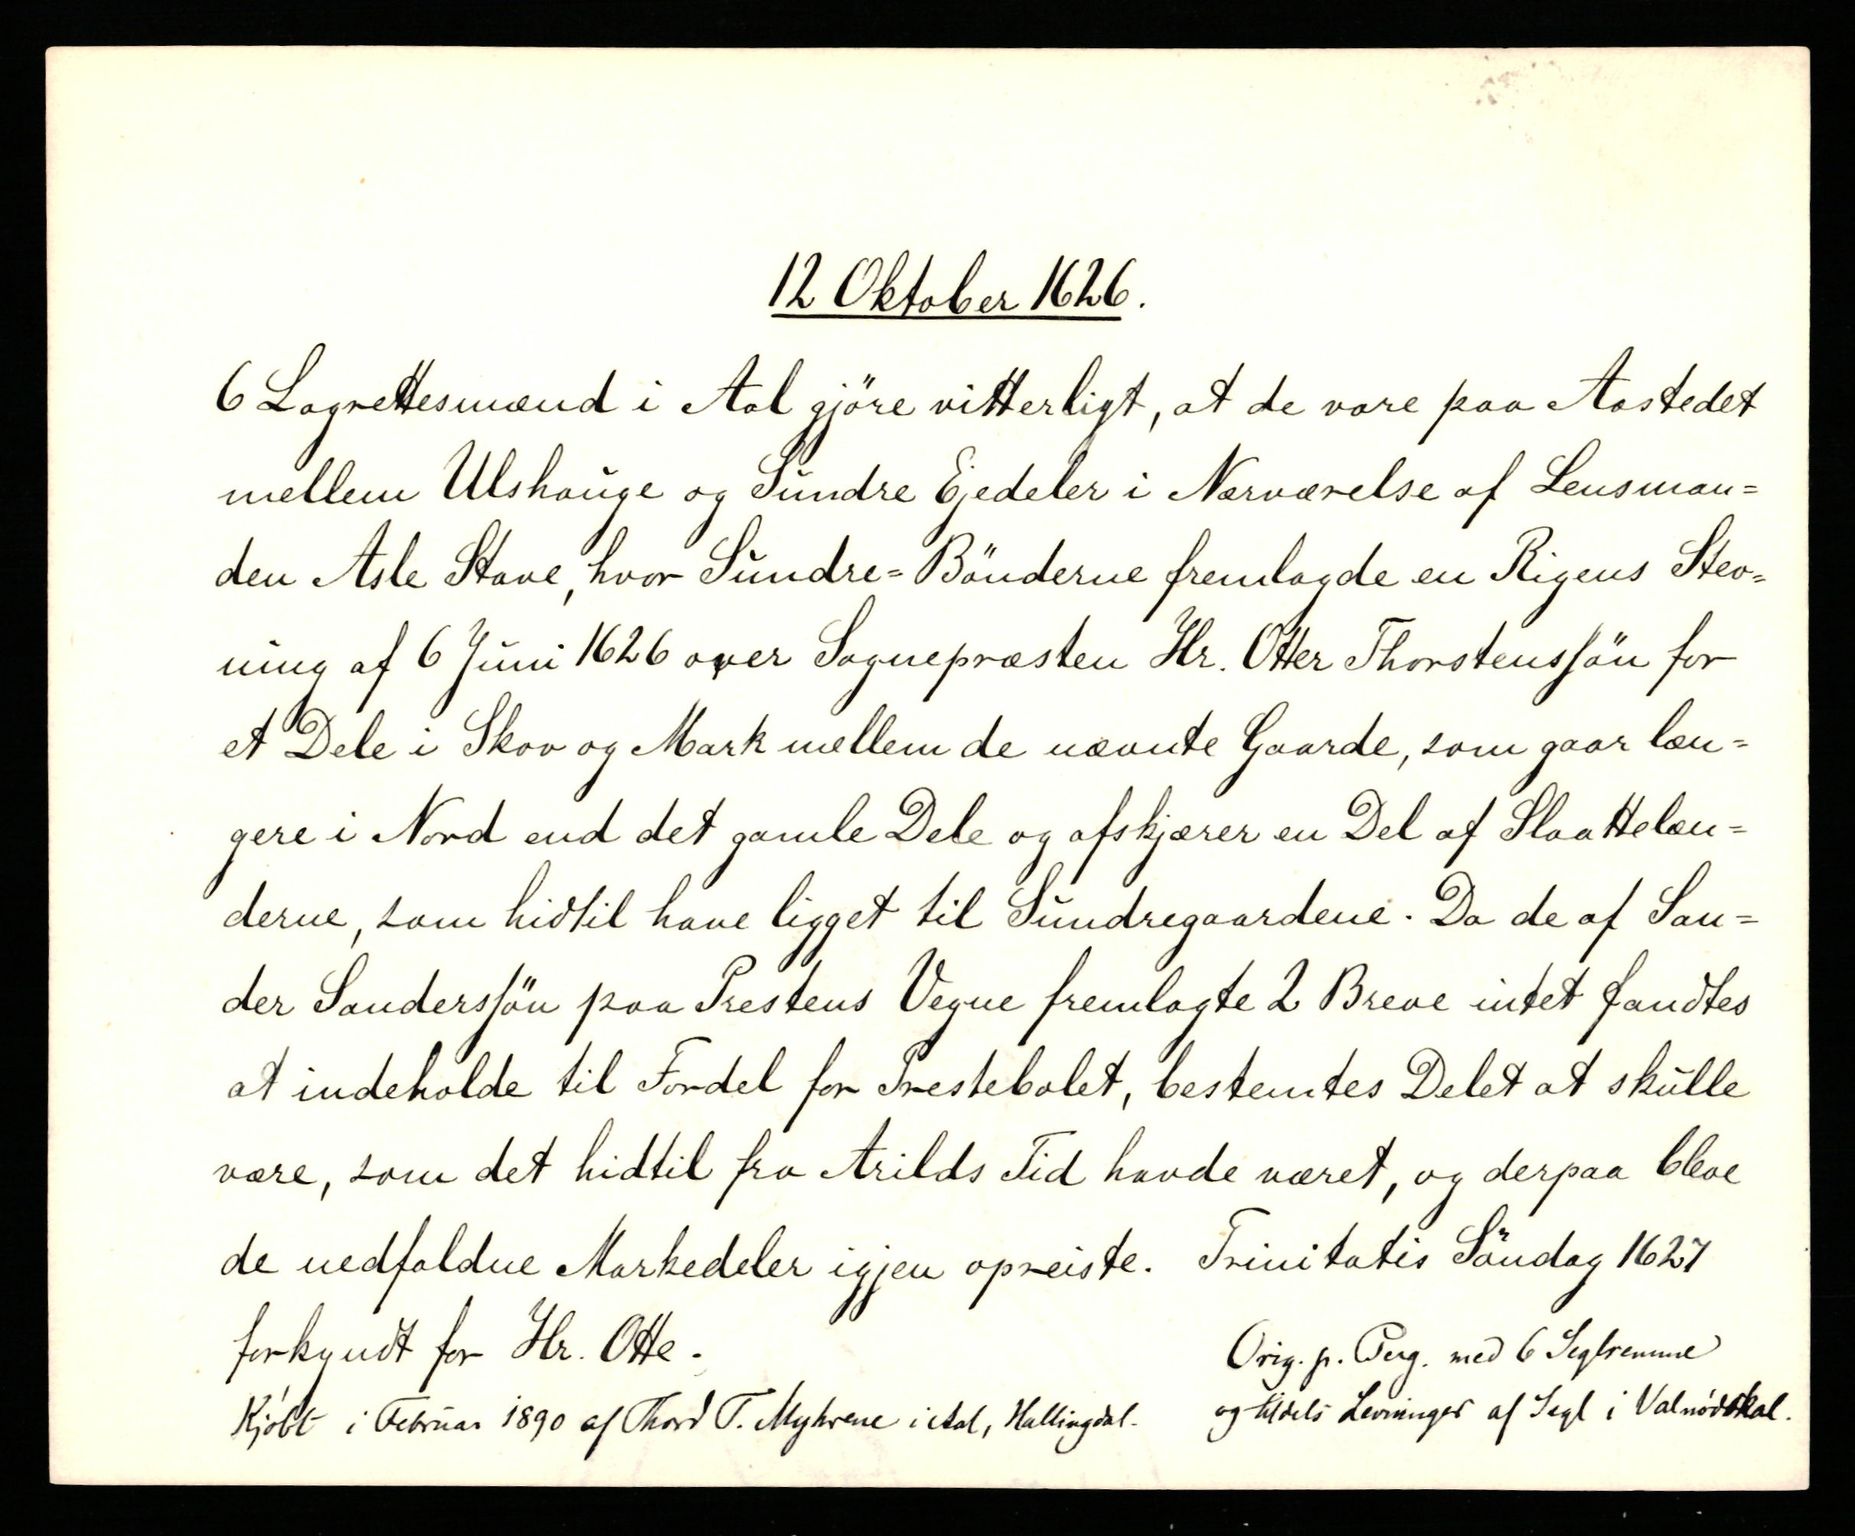 12 Oktober 1626.
6 Lagrettesmænd i Aal gjöre vitterligt, at de vare paa Aastedet
mellem Ulshauge og Sundre Ejedeler i Nærværelse af Lensman=
den Asle Stave, hvor Sundre=Bönderne fremlagde en Rigens Stev=
ning af 6 Juni 1626 over Sognepræsten Hr. Otter Thorstenssön for
et Dele i Skov og Mark mellem de nævnte Gaarde, som gaar læn=
gere i Nord end det gamle Dele og afskjærer en Del af Slaattelæn=
derne, som hidtil have ligget til Sundregaardene. Da de af San=
der Sanderssön paa Prestens Vegne fremlagte 2 Breve intet fandtes
at indeholde til Fordel for Prestebolet, bestemtes Delet at skulle
være, som det hidtil fra Arilds Tid havde været, og derpaa bleve
de nedfaldne Markedeler igjen opreiste. Trinitatis Söndag 1627
forkyndt for Hr. Otte.
Orig. p. Perg. med 6 Seglremme
og tildels Levninger af Segl i Valnødskal.
Kjöbt i Februar 1890 af Thord T. Myhrene i Aal, Hallingdal.